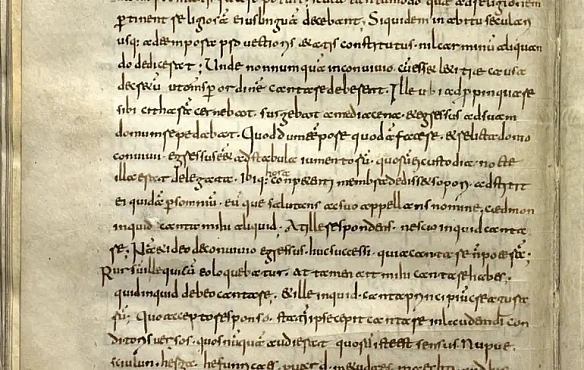 pertinent & religiosā eius linguā decebant; Siquidem in abitu seculari
usq; ad tempora prouectioris ætatis constitutus · nil carminū aliquan
do didicerat; Unde nonnumquā in conuiuio cū esset lætitiæ causa
decretū ut omnes per ordinē cantare deberent · Ille ubi adpropinquare
sibi citharā cernebat · surgebat a media cena · & egressus ad suam
domum repedabat · Quod dum tempore quodā faceret · & relicta domo
conuiuii egressus eēt ad stabula iumentorū · quorū ei custodia nocte
illa erat delegata · ibiq; hora conpetenti membra dedisset sopori · adstitit
ei quidā per somniū · eūque salutans ac suo appellans nomine, cædmon
inquid canta mihi aliquid · At ille respondens · nescio inquid canta
re; Nā & ideo de conuiuio egressus · huc successi · quia cantare n̄ poterā;
Rursū ille qui cū eo loquebatur · at tamen ait mihi cantare habes ·
quid inquid debeo cantare · & ille inquid · canta principiū creatura
rū; Quo accepto responso · statī ipse cepit cantare in laudem dī con
ditoris uersos · quos nūquā audierat quorū iste est sensus Nu pue
sciulun herga hefunricaes uard metudaes